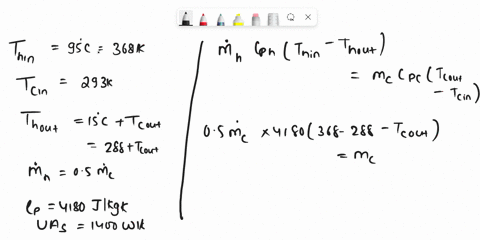 T_hin = 95°C = 368K
T_Cin = 293K
T_hout = 15°C + T_Cout
= 288 + T_Cout
ṁ_h = 0.5 ṁ_c
Cp = 4180 J/kgk
UAs = 1400 W/k
ṁ_h Cph (T_hin - T_hout)
= m_c Cpc (T_cout
- T_cin)
0.5 ṁ_c × 4180 (368 - 288 - T_cout)
= m_c